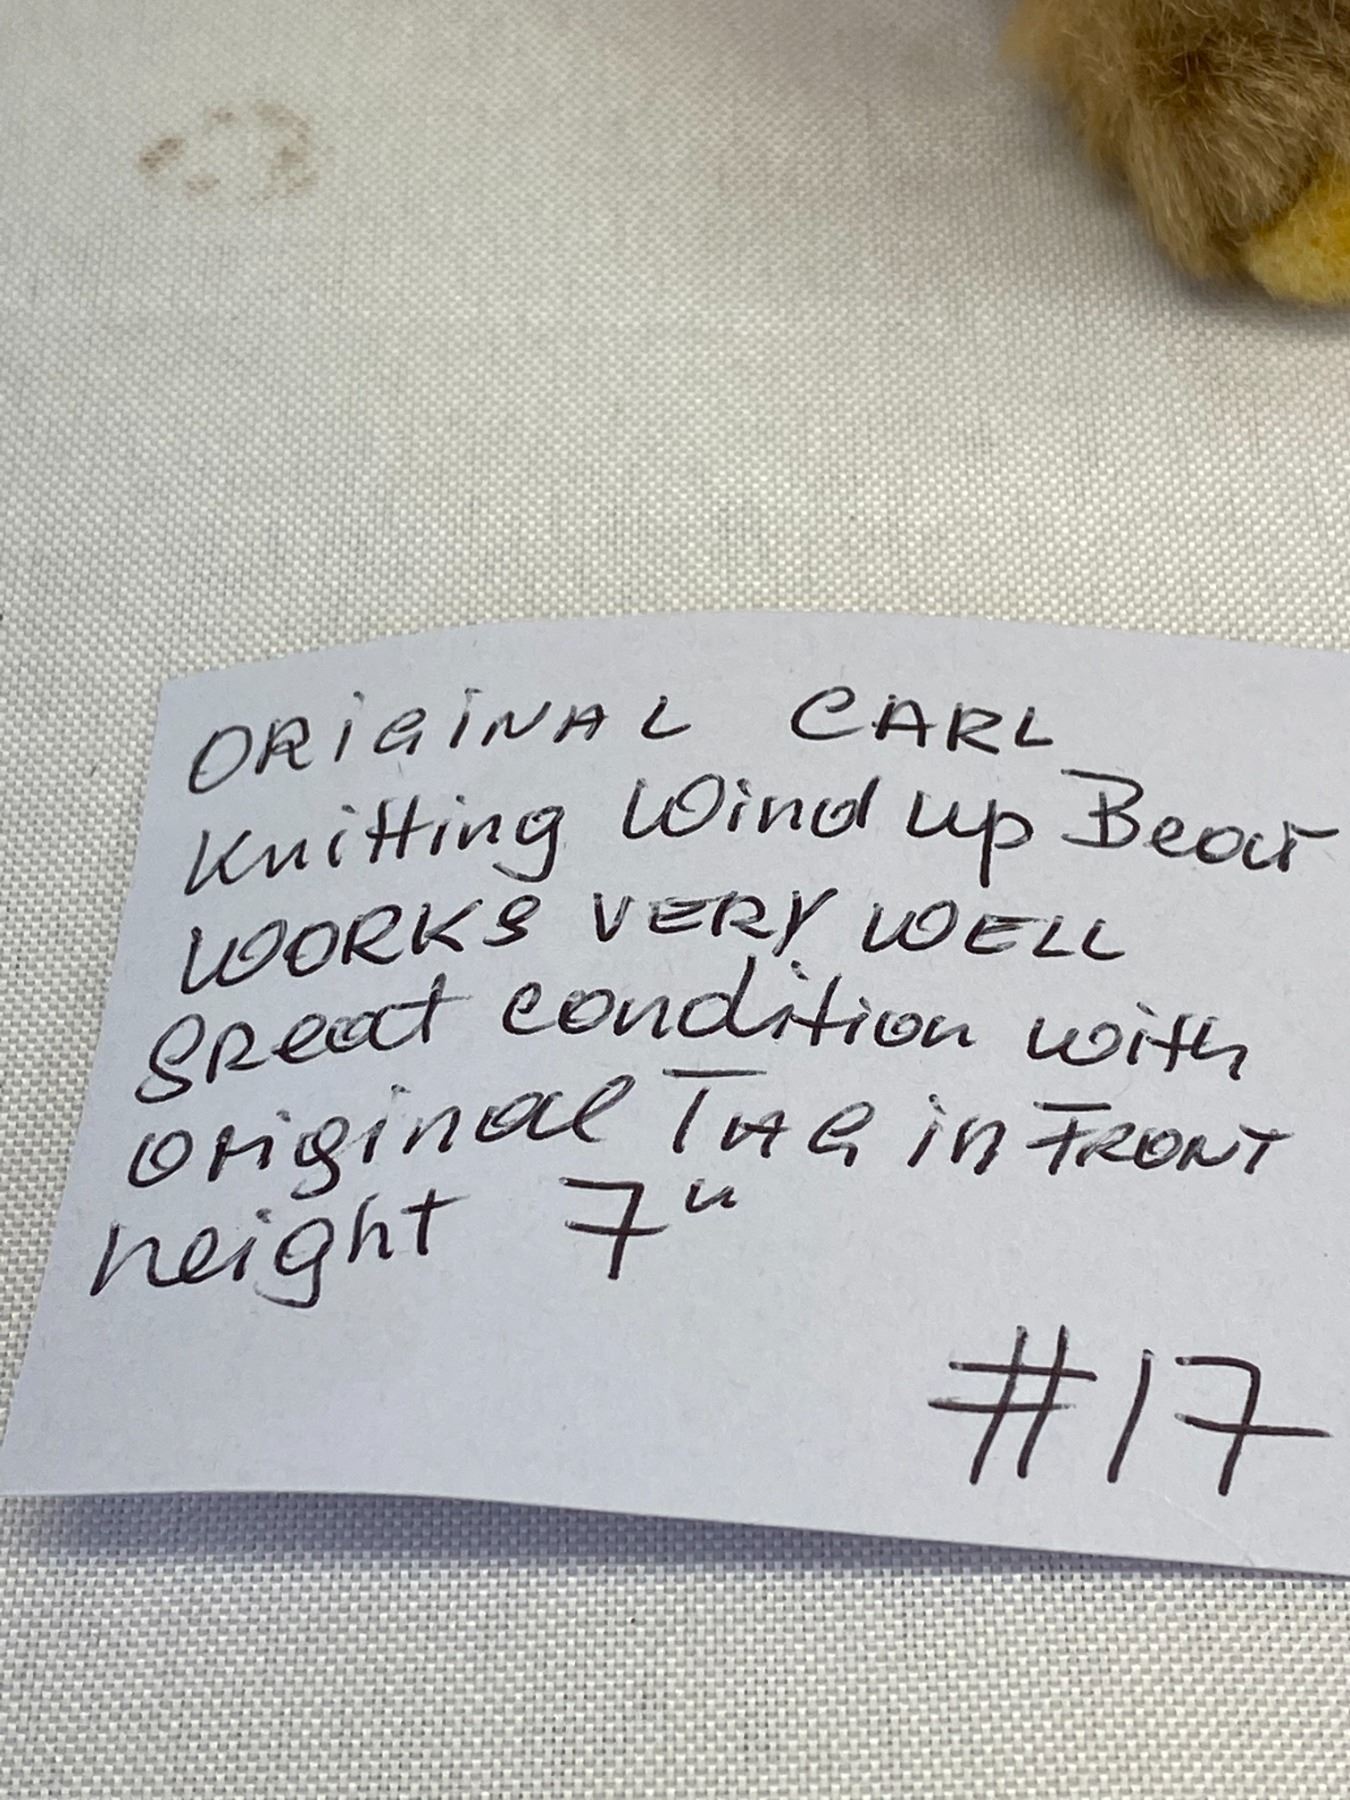 ORIGINAL CARL
Knitting Wind up Bear
WORKS VERY WELL
great condition with
original TAG in FRONT
height 7"
#17